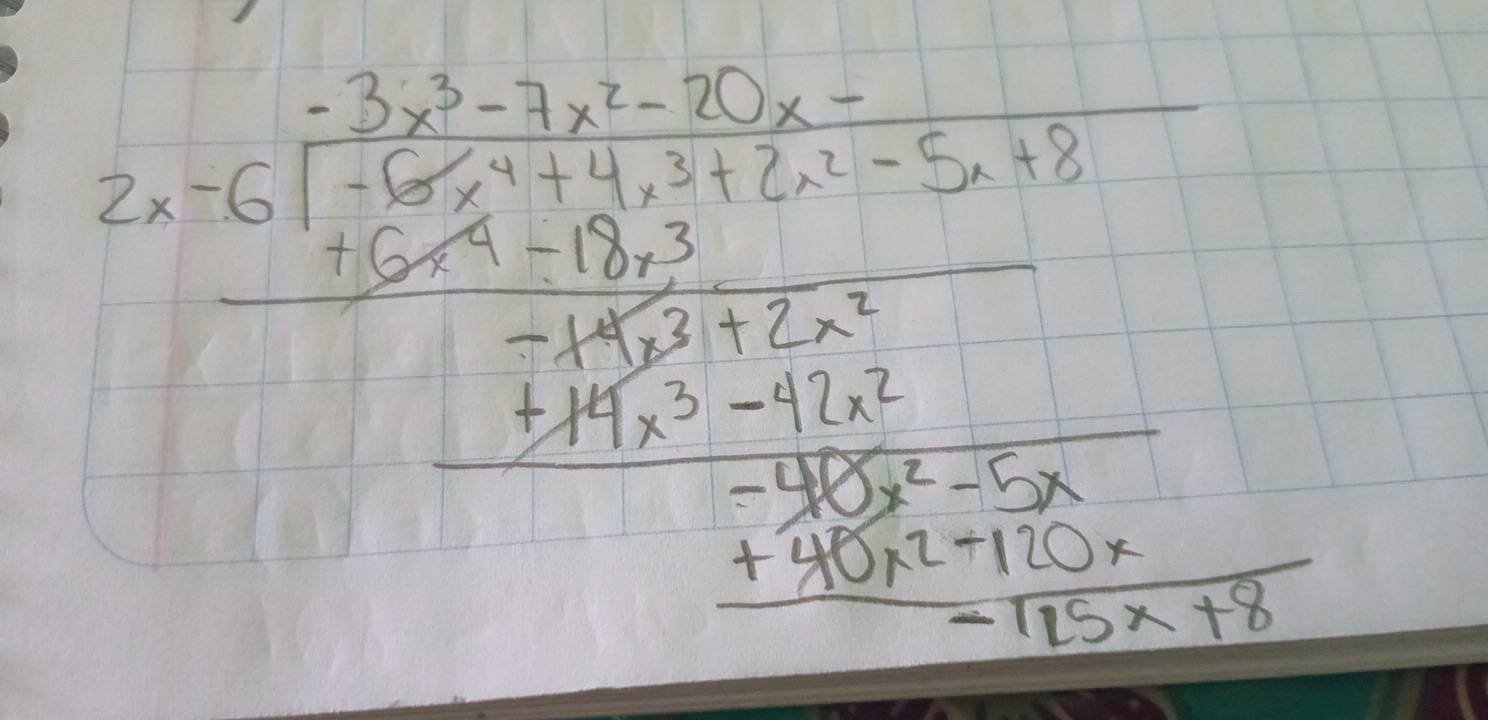 - 3x³ - 7x² - 20x -
2x - 6 | - 6x⁴ + 4x³ + 2x² - 5x + 8
+ 6x⁴ - 18x³
- 14x³ + 2x²
+ 14x³ - 42x²
- 40x² - 5x
+ 40x² - 120x
- 125x + 8